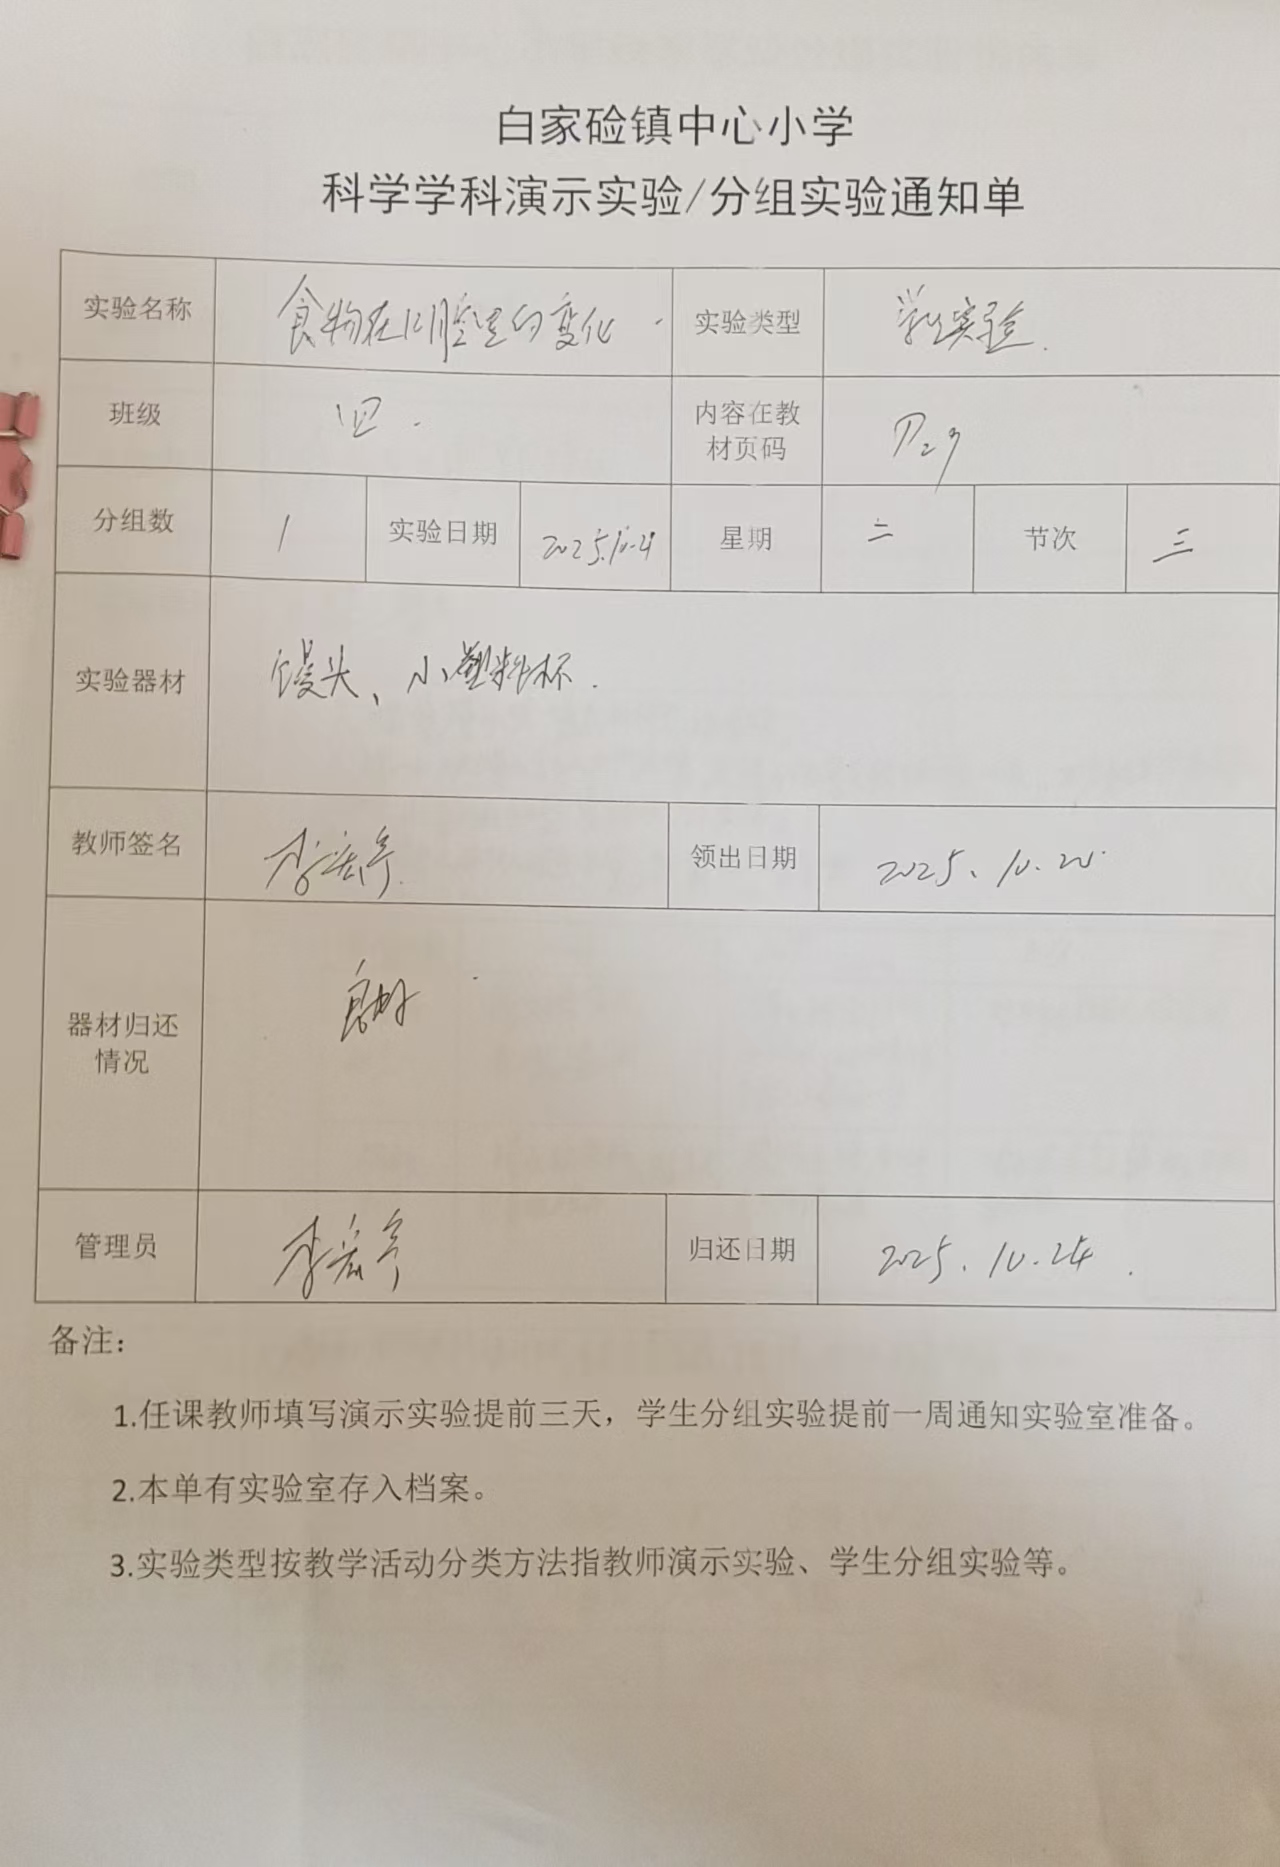 白家硷镇中心小学
科学学科演示实验/分组实验通知单
实验名称 食物在口腔里的变化 实验类型 学生实验.
班级 四. 内容在教材页码 P29
分组数 1 实验日期 2025.10.21 星期 二 节次 三
实验器材 馒头、小塑料杯.
教师签名 李 领出日期 2025、10.20.
器材归还情况 良好
管理员 李 归还日期 2025、10.24.
备注：
1.任课教师填写演示实验提前三天，学生分组实验提前一周通知实验室准备。
2.本单有实验室存入档案。
3.实验类型按教学活动分类方法指教师演示实验、学生分组实验等。